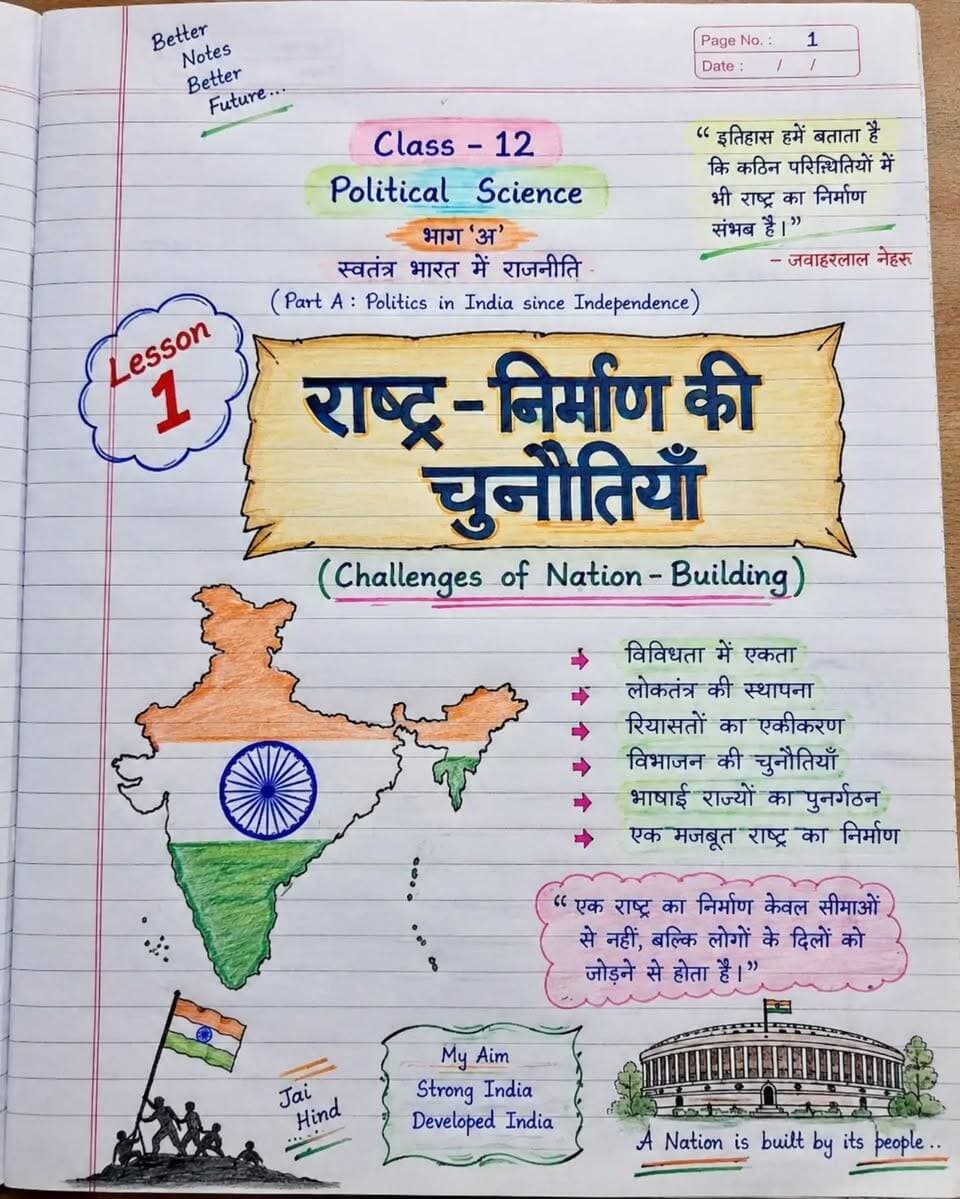 Better
Notes
Better
Future...
Page No. : 1
Date : / /
Class - 12
Political Science
भाग 'अ'
स्वतंत्र भारत में राजनीति
(Part A : Politics in India since Independence)
“ इतिहास हमें बताता है
कि कठिन परिस्थितियों में
भी राष्ट्र का निर्माण
संभव है।”
- जवाहरलाल नेहरू
Lesson
1
राष्ट्र - निर्माण की
चुनौतियाँ
(Challenges of Nation - Building)
➡ विविधता में एकता
➡ लोकतंत्र की स्थापना
➡ रियासतों का एकीकरण
➡ विभाजन की चुनौतियाँ
➡ भाषाई राज्यों का पुनर्गठन
➡ एक मजबूत राष्ट्र का निर्माण
“ एक राष्ट्र का निर्माण केवल सीमाओं
से नहीं, बल्कि लोगों के दिलों को
जोड़ने से होता है।”
Jai
Hind
My Aim
Strong India
Developed India
A Nation is built by its people ..